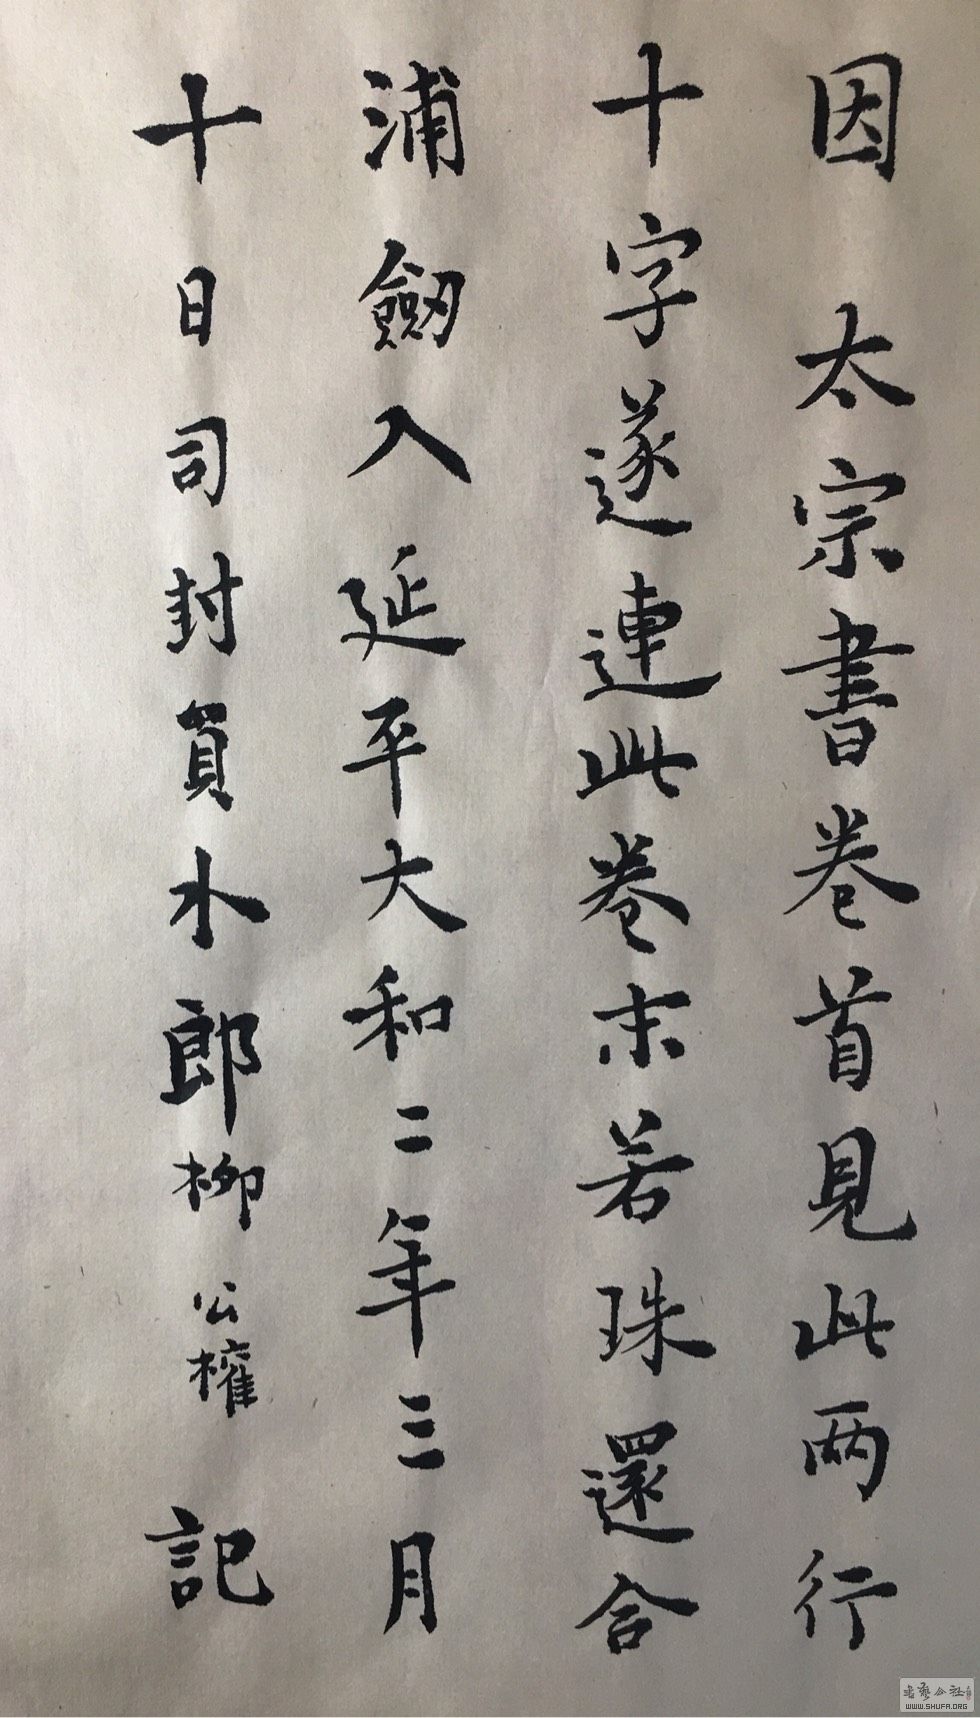 因太宗書卷首見此兩行
十字遂連此卷末若珠還合
浦劒入延平大和二年三月
十日司封員水郎柳公權記
書藝公社
WWW.SHUFA.ORG